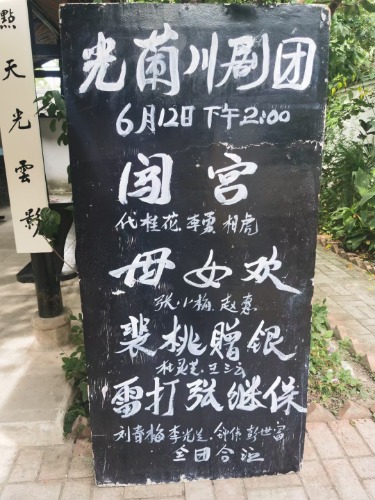 點天光雲影
光蘭川剧团
6月12日下午2:00
闯宫
代桂花 李雯 相虎
母女欢
张小梅 赵嘉
裴桃赠银
杜灵芝 卫三云
雷打张继保
刘春梅 李光生 钟伟 彭世富
全团合演